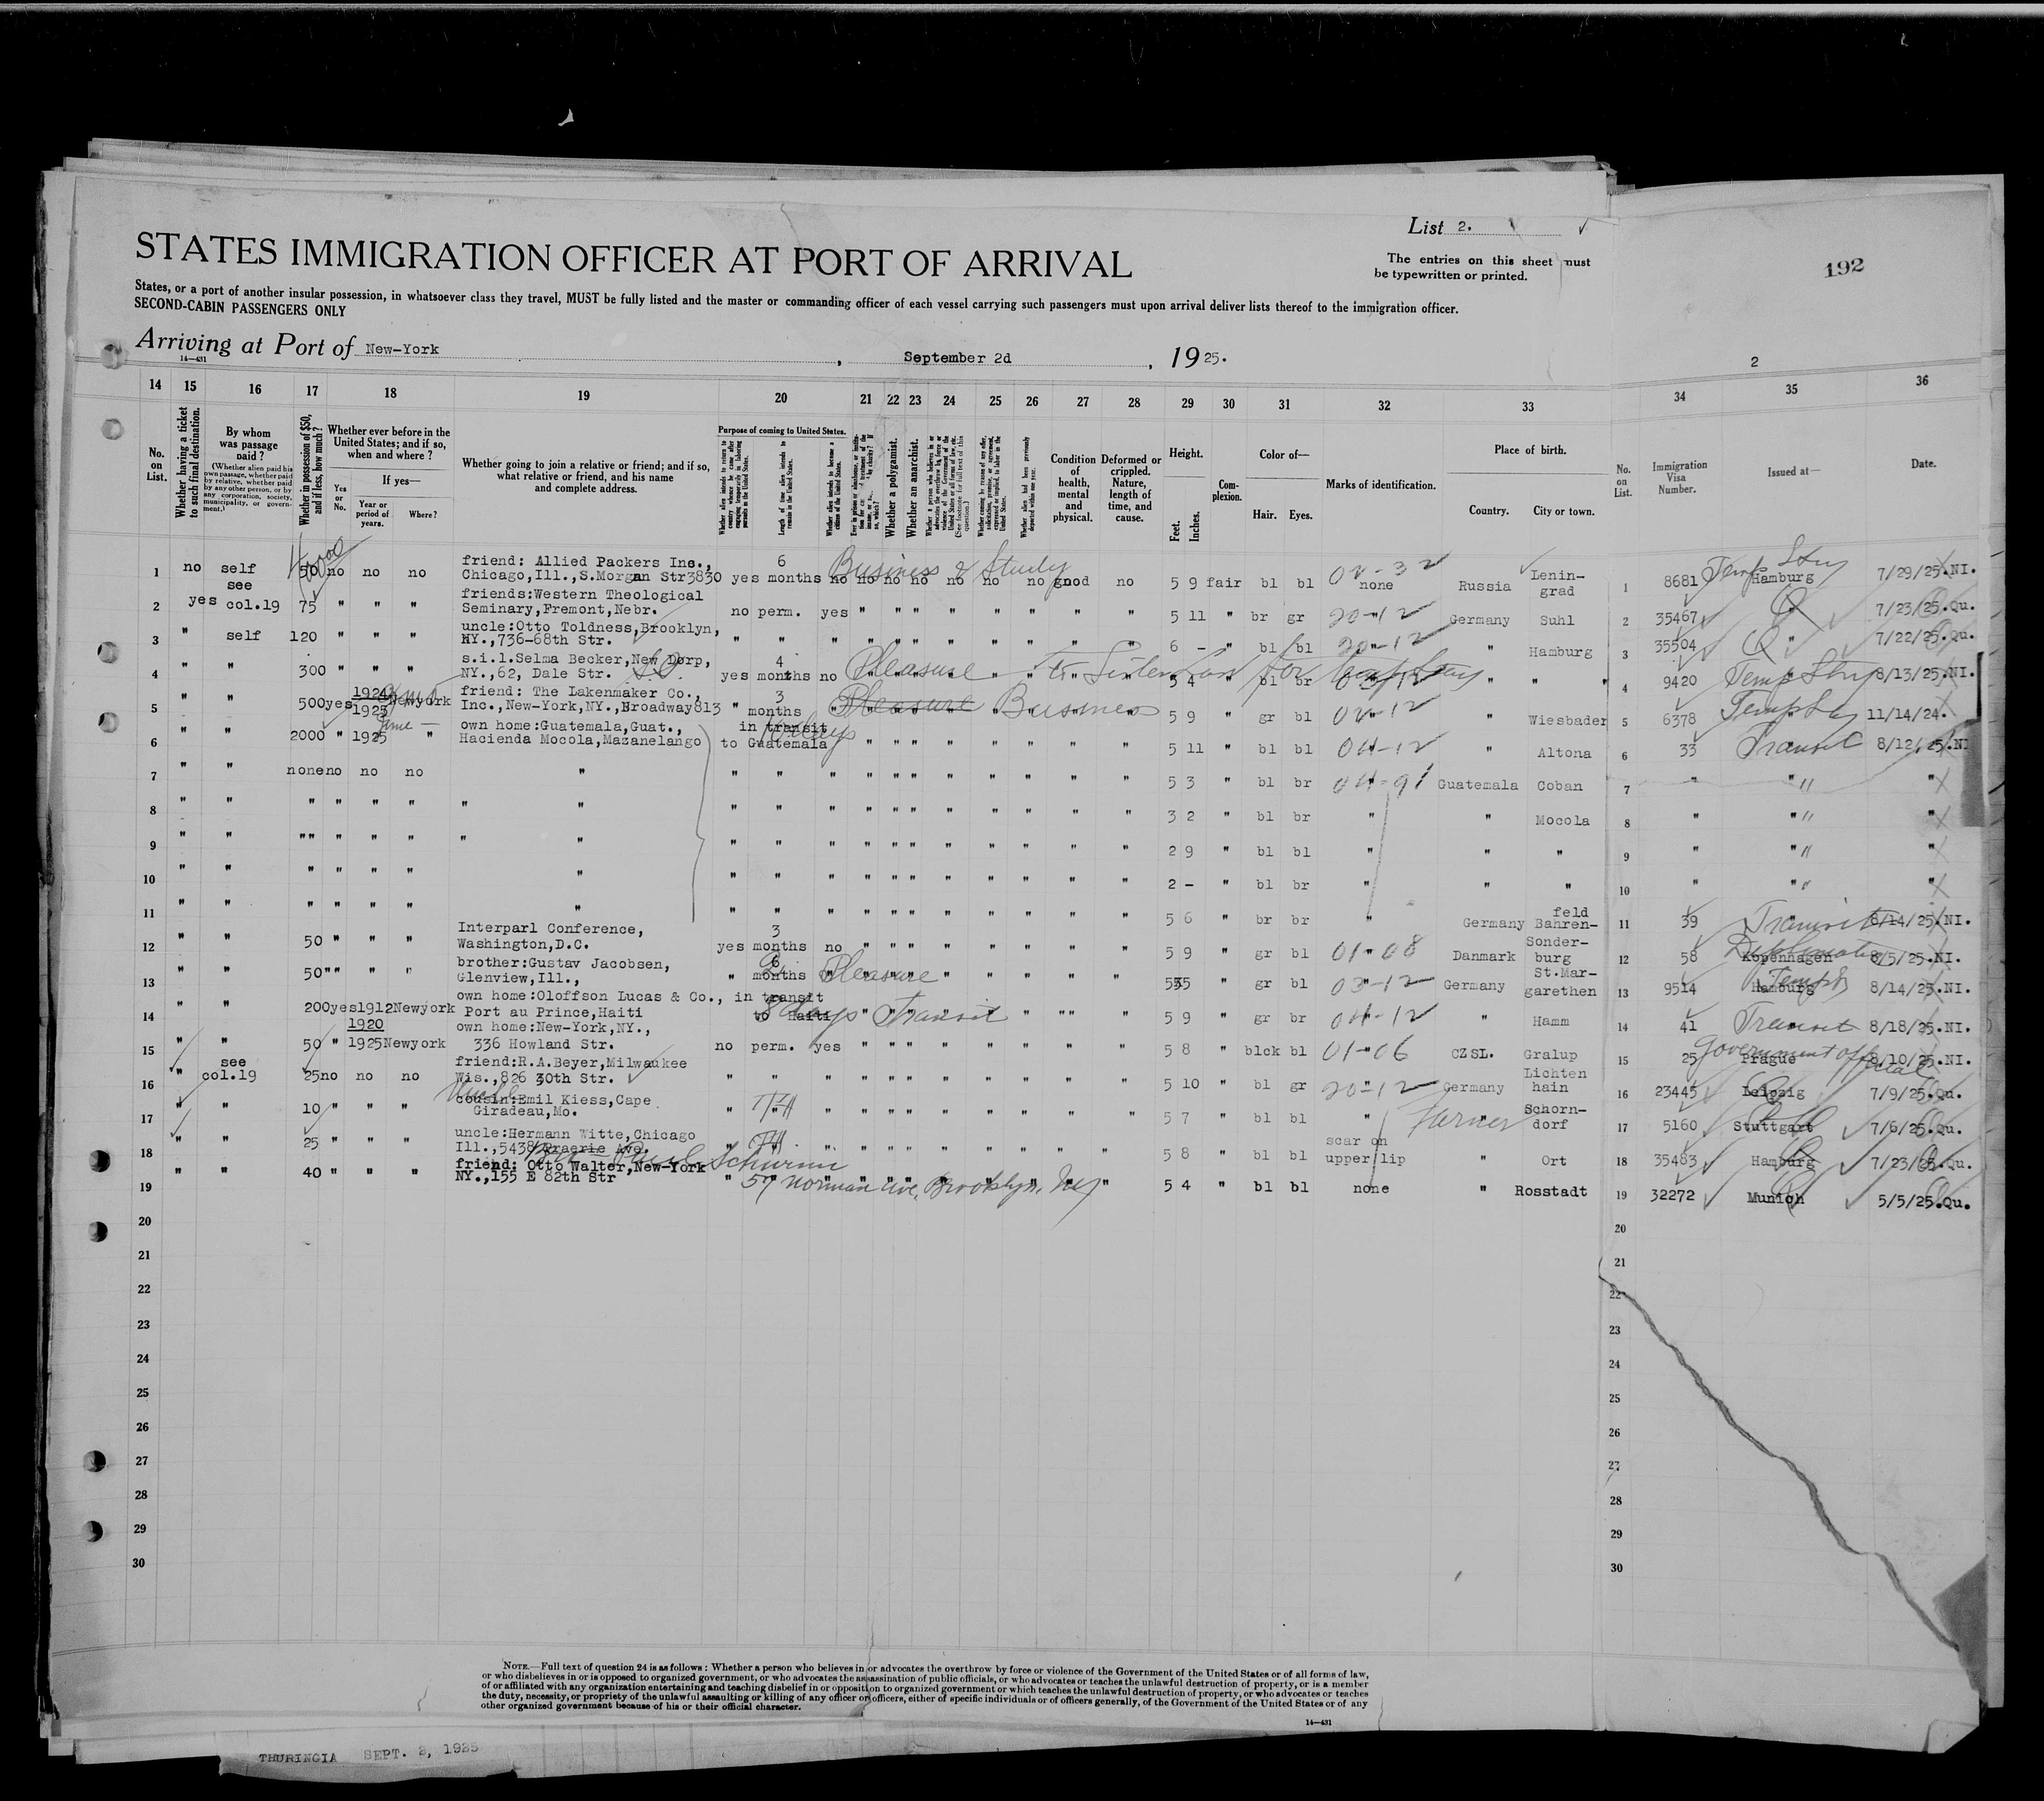 List 2.
STATES IMMIGRATION OFFICER AT PORT OF ARRIVAL
The entries on this sheet must
be typewritten or printed.
192
States, or a port of another insular possession, in whatsoever class they travel, MUST be fully listed and the master or commanding officer of each vessel carrying such passengers must upon arrival deliver lists thereof to the immigration officer.
SECOND-CABIN PASSENGERS ONLY
Arriving at Port of New-York, September 2d, 1925.
14—431
2
14 15 16 17 18 19 20 21 22 23 24 25 26 27 28 29 30 31 32 33 34 35 36
No. on List.
Whether having a ticket to such final destination.
By whom was passage paid?
(Whether alien paid his own passage, whether paid by relative, whether paid by any other person, or by any corporation, society, municipality, or government.)
Whether in possession of $50, and if less, how much?
Whether ever before in the United States; and if so, when and where?
If yes—
Yes or No.
Year or period of years.
Where?
Whether going to join a relative or friend; and if so, what relative or friend, and his name and complete address.
Purpose of coming to United States.
Length of time alien intends to remain in the United States.
Whether alien intends to become a citizen of the United States.
Whether a polygamist.
Whether an anarchist.
Condition of health, mental and physical.
Deformed or crippled. Nature, length of time, and cause.
Height.
Feet. Inches.
Complexion.
Color of—
Hair. Eyes.
Marks of identification.
Place of birth.
Country. City or town.
No. on List.
Immigration Visa Number.
Issued at—
Date.
1 no self 50 no no no friend: Allied Packers Inc., Chicago,Ill.,S.Morgan Str3830 yes 6 months no no no no no no no good no 5 9 fair bl bl none Russia Lenin-grad 1 8681 Hamburg 7/29/25.NI.
Business & Study 02-32
2 yes see col.19 75 " " " friends:Western Theological Seminary,Fremont,Nebr. no perm. yes " " " " " " " " 5 11 " br gr 20-12 Germany Suhl 2 35467 7/23/25.Qu.
3 " self 120 " " " uncle:Otto Toldness,Brooklyn, NY.,736-68th Str. " " " " " " " " " " " 6 - " bl bl 20-12 " Hamburg 3 35504 " 7/22/25.Qu.
4 " " 300 " " " s.i.l.Selma Becker,New Dorp, NY.,62, Dale Str. yes 4 months no Pleasure 5 4 bl br " " 4 9420 8/13/25.NI.
5 " " 500 yes 1924 1925 Newyork friend: The Lakenmaker Co., Inc.,New-York,NY.,Broadway813 " 3 months " Pleasure Business 5 9 " gr bl 02-12 " Wiesbaden 5 6378 11/14/24.
6 " " 2000 " 1925 " own home:Guatemala,Guat., Hacienda Mocola,Mazanelango in transit to Guatemala " " " " " " " " 5 11 " bl bl 04-12 " Altona 6 33 Transit 8/12/25.NI
7 " " none no no no " " " " " " " " " " " " 5 3 " bl br 04-91 Guatemala Coban 7 " " "
8 " " " " " " " " " " " " " " " " " " " 3 2 " bl br " " Mocola 8 " " "
9 " " "" " " " " " " " " " " " " " " " " 2 9 " bl bl " " " 9 " " "
10 " " " " " " " " " " " " " " " " " " 2 - " bl br " " " 10 " " "
11 " " " " " " " " " " " " " " " " " " 5 6 " br br " Germany Bahren-feld 11 39 Transit 8/14/25.NI.
12 " " 50 " " " Interparl Conference, Washington,D.C. yes 3 months no " " " " " " " " 5 9 " gr bl 01-08 Danmark Sonder-burg 12 58 Kopenhagen 8/5/25.NI.
13 " " 50 "" " " brother:Gustav Jacobsen, Glenview,Ill., " 6 months Pleasure " " " " " 5 5 " gr bl 03-12 Germany St.Mar-garethen 13 9514 Hamburg 8/14/25.NI.
14 " " 200 yes 1912 Newyork own home:Oloffson Lucas & Co., Port au Prince,Haiti in transit to Haiti days Transit 5 9 " gr br 04-12 " Hamm 14 41 Transit 8/18/25.NI.
15 " " 50 " 1920 1925 Newyork own home:New-York,NY., 336 Howland Str. no perm. yes " " " " " " " " 5 8 " blck bl 01-06 CZSL. Gralup 15 25 Prague 8/10/25.NI.
Government official
16 " see col.19 25 no no no friend:R.A.Beyer,Milwaukee Wis.,826 30th Str. " " " " " " " " " " " 5 10 " bl gr 20-12 Germany Lichten hain 16 23445 Leipzig 7/9/25.Qu.
17 " " 10 " " " cousin:Emil Kiess,Cape Giradeau,Mo. " " " " " " " " " " 5 7 " bl bl " Farmer Schorn-dorf 17 5160 Stuttgart 7/6/25.Qu.
18 " " 25 " " " uncle:Hermann Witte,Chicago Ill.,5438 Praerie Ave. " " " " " " " " " " " 5 8 " bl bl scar on upper lip " Ort 18 35483 Hamburg 7/23/25.Qu.
19 " " 40 " " " friend: Otto Walter,New-York NY.,155 E 82th Str 57 Norman Ave, Brooklyn, NY 5 4 " bl bl none " Rosstadt 19 32272 Munich 5/5/25.Qu.
20 20
21 21
22 22
23 23
24 24
25 25
26 26
27 27
28 28
29 29
30 30
NOTE.—Full text of question 24 is as follows: Whether a person who believes in or advocates the overthrow by force or violence of the Government of the United States or of all forms of law,
or who disbelieves in or is opposed to organized government, or who advocates the assassination of public officials, or who advocates or teaches the unlawful destruction of property, or is a member
of or affiliated with any organization entertaining and teaching disbelief in or opposition to organized government or which teaches the unlawful destruction of property, or who advocates or teaches
the duty, necessity, or propriety of the unlawful assaulting or killing of any officer or officers, either of specific individuals or of officers generally, of the Government of the United States or of any
other organized government because of his or their official character.
14—431
THURINGIA SEPT. 2, 1925